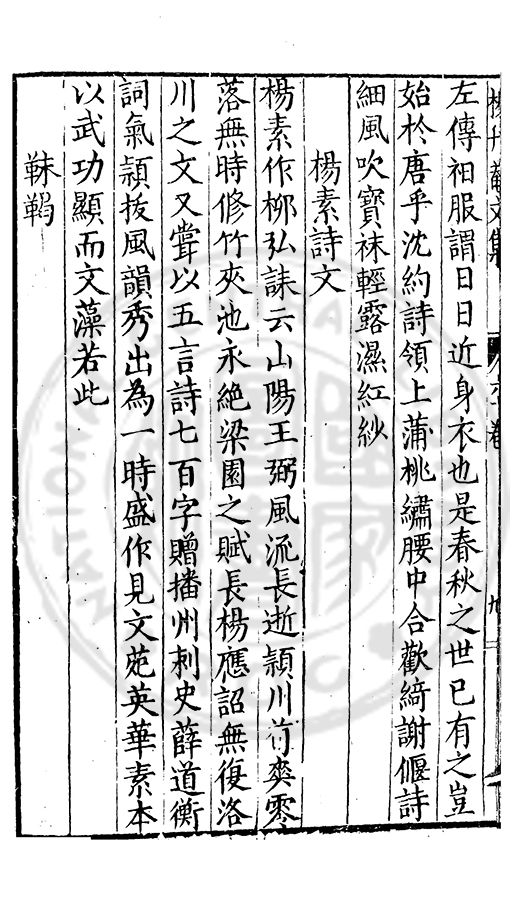 左傳衵服謂日日近身衣也是春秋之世已有之豈
始於唐乎沈約詩領上蒲桃繡腰中合歡綺謝偃詩
細風吹寶袜輕露濕紅紗
楊素詩文
楊素作栁弘誄云山陽王弼風流長逝頴川荀爽零
落無時修竹夾池永絶梁園之賦長楊應詔無復洛
川之文又嘗以五言詩七百字贈播州刺史薛道衡
詞氣頴抜風韻秀出為一時盛作見文苑英華素本
以武功顯而文藻若此
韎鞨